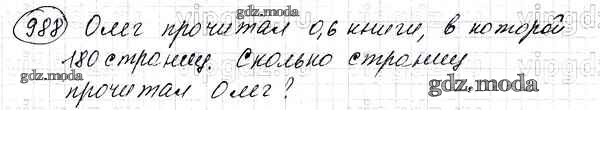 988 Олег прочитал 0,6 книги, в которой
180 страниц. Сколько страниц
gdz.moda
прочитал Олег?
gdz.moda